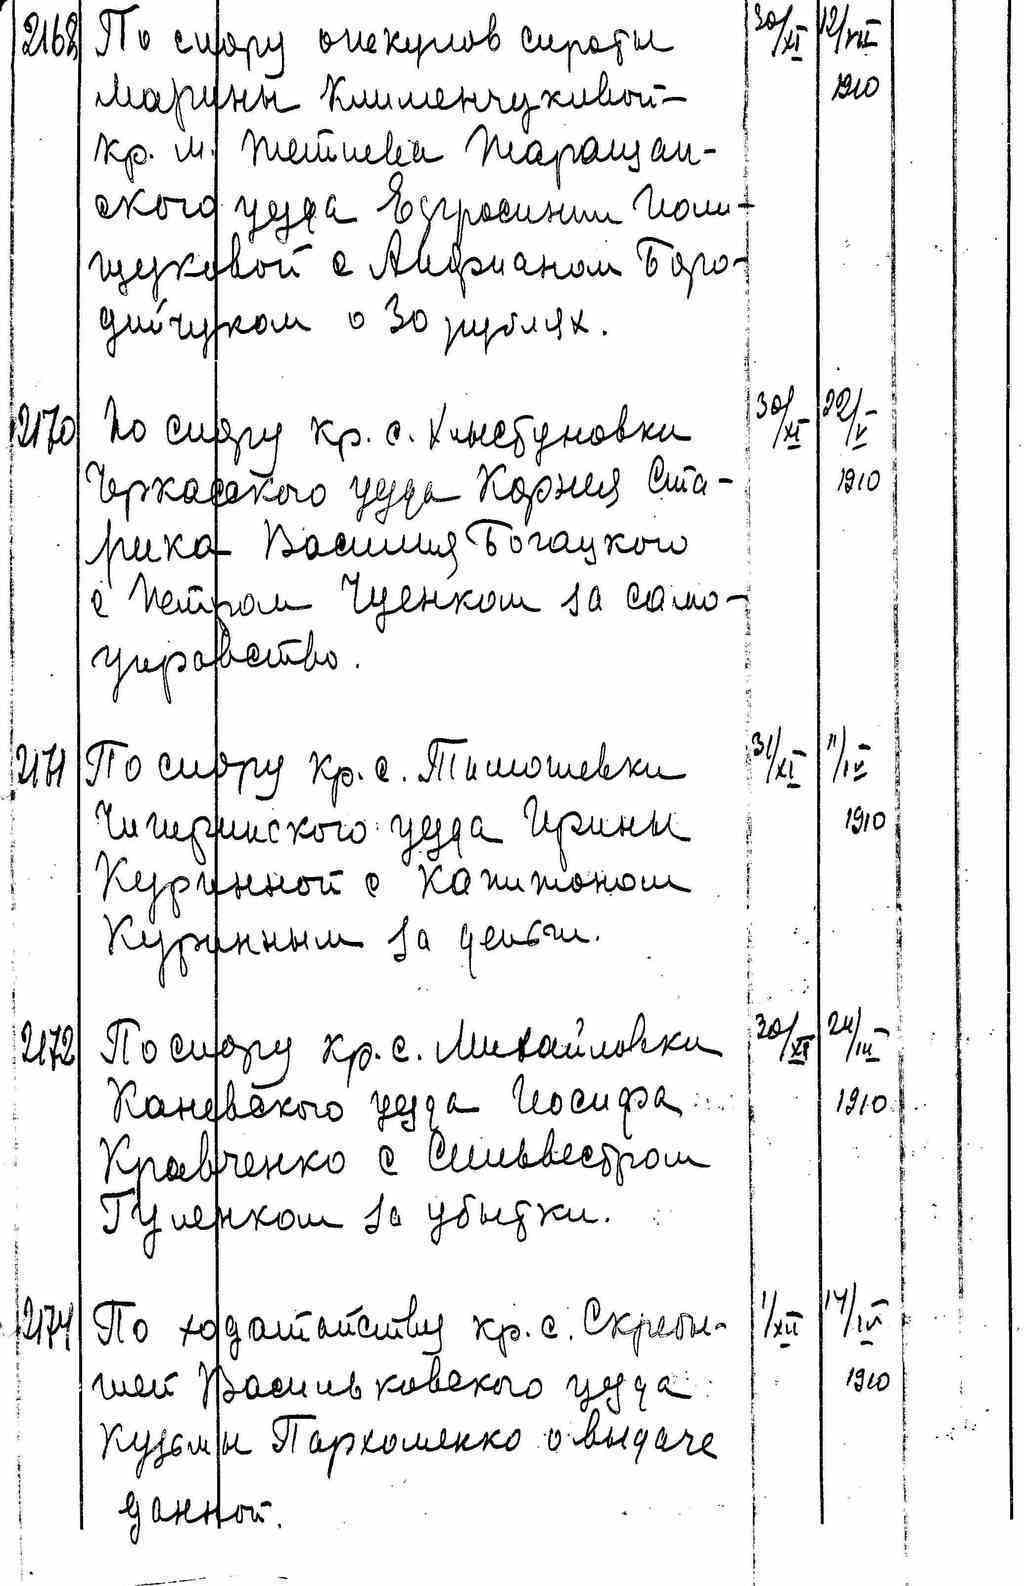 2168 По спору опекунов сироты 30/XI 12/VII
Марины Клименчуковой - 1910
кр. м. Тетиева Таращан-
ского уезда Евгросинии Поли-
щуковой с Андрианом Боро-
дийчуком о 30 рублях.
2170 По спору кр. с. Хлыстуновки 30/XI 22/V
Черкасского уезда Корнея Ста- 1910
рика Василия Богацкого
с Петром Чуенком за само-
управство.
2171 По спору кр. с. Тимошевки 31/XI 11/IV
Чигиринского уезда Ирины 1910
Куринной с Капитоном
Куринным за деньги.
2172 По спору кр. с. Михайловки 30/XI 24/III
Каневского уезда Иосифа 1910
Кравченко с Сильвестром
Гуленком за убытки.
2174 По ходатайству кр. с. Скребы- 1/XII 14/IV
шей Васильковского уезда 1910
Кузьмы Пархоменко о выдаче
данной.